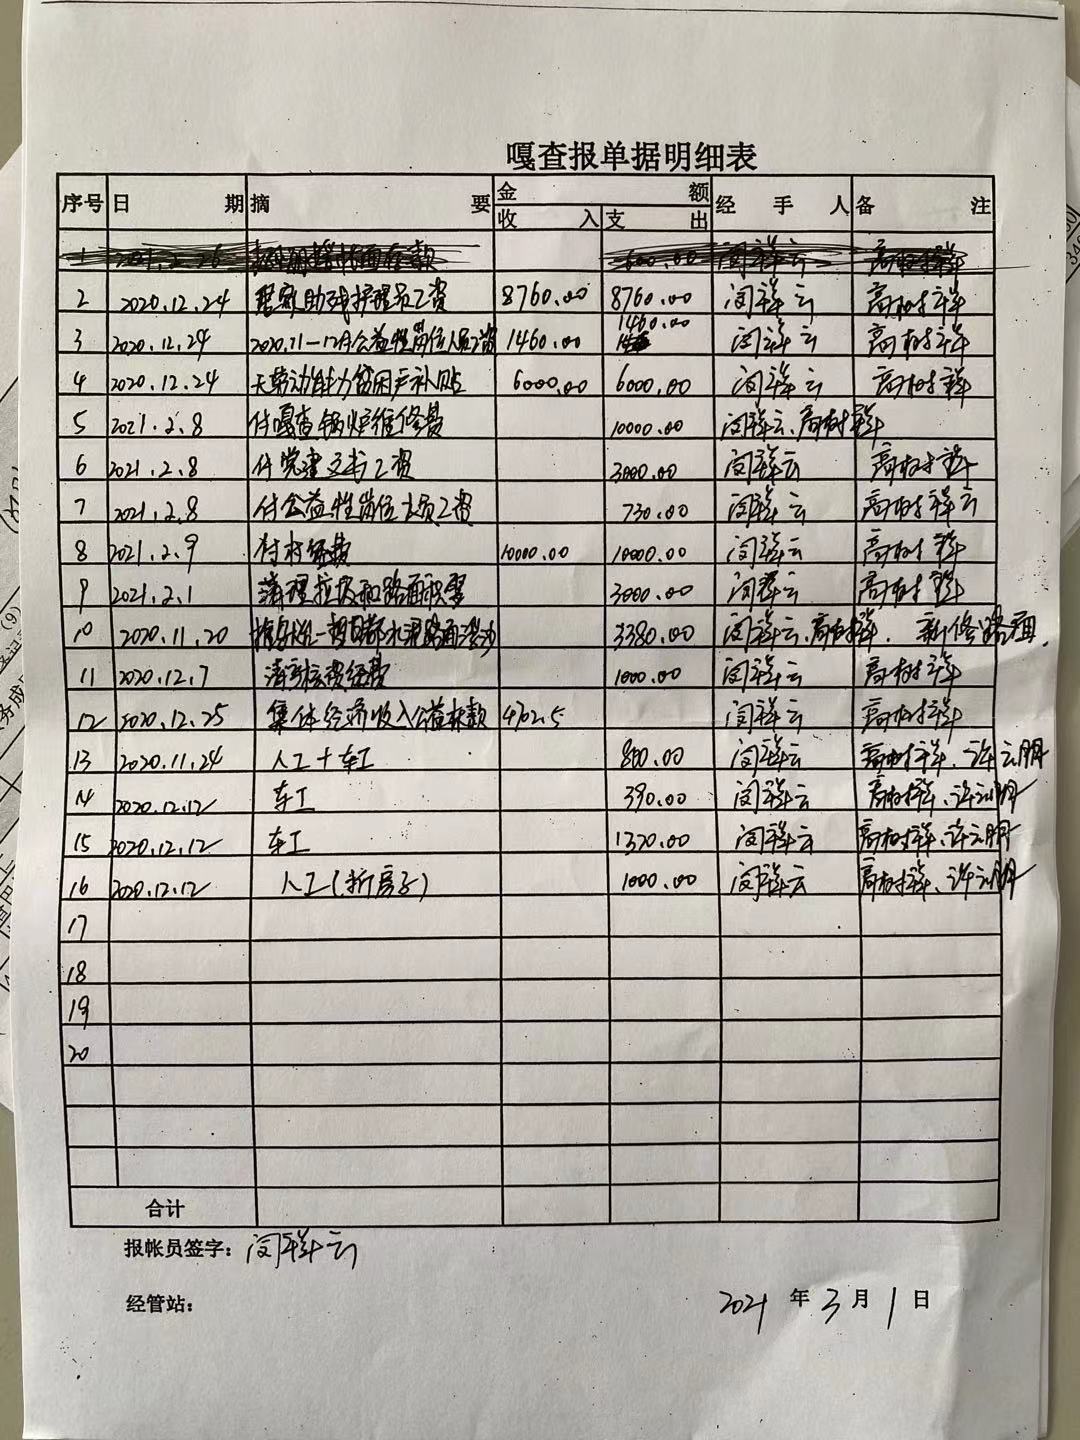 嘎查报单据明细表
序号 日期 摘要 金额 经手人 备注
收入 支出
1 2021.2.26 600.00 闵祥云 高树祥
2 2020.12.24 居家助残护理员工资 8760.00 8760.00 闵祥云 高树祥
3 2020.12.24 2020.11-12月公益性岗位人员工资 1460.00 1460.00 闵祥云 高树祥
4 2020.12.24 无劳动能力贫困户补贴 6000.00 6000.00 闵祥云 高树祥
5 2021.2.8 付嘎查锅炉维修费 10000.00 闵祥云、高树祥
6 2021.2.8 付党建文书工资 3000.00 闵祥云 高树祥
7 2021.2.8 付公益性岗位人员工资 730.00 闵祥云 高树祥云
8 2021.2.9 付村经费 10000.00 10000.00 闵祥云 高树祥
9 2021.2.1 清理垃圾和路面积雪 3000.00 闵祥云 高树祥
10 2020.11.20 水泥路面 3380.00 闵祥云、高树祥. 新修路面.
11 2020.12.7 清产核资经费 1000.00 闵祥云 高树祥
12 2020.12.25 集体经济收入公益林款 4762.5 闵祥云 高树祥
13 2020.11.24 人工+车工 800.00 闵祥云 高树祥、许云朋
14 2020.12.12 车工 390.00 闵祥云 高树祥、许云朋
15 2020.12.12 车工 1320.00 闵祥云 高树祥、许云朋
16 2020.12.12 人工(拆房子) 1000.00 闵祥云 高树祥、许云朋
17
18
19
20
合计
报帐员签字: 闵祥云
经管站: 2021年3月1日